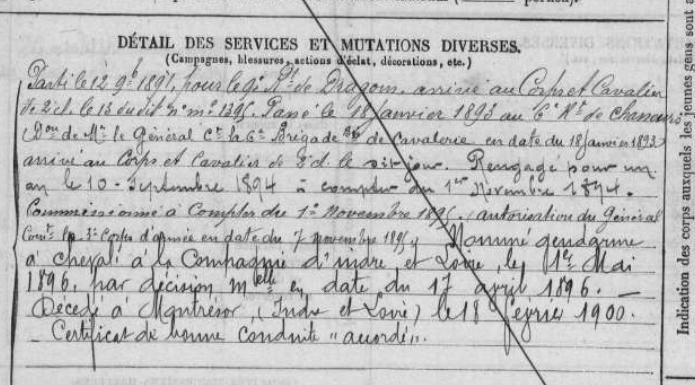 DÉTAIL DES SERVICES ET MUTATIONS DIVERSES.
(Campagnes, blessures, actions d'éclat, décorations, etc.)
Parti le 12 9bre 1891, pour le 9e Rt de Dragons, arrivé au Corps et Cavalier
de 2e cl. le 13 du dit n° mle 1395. Passé le 18 janvier 1893 au 6e Rt de chasseurs
(Don de Mr le Général Ct la 6e Brigade de Cavalerie en date du 18 janvier 1893
arrivé au Corps et Cavalier de 2e cl. le dit jour. Rengagé pour un
an le 10 - Septembre 1894 à compter du 1er Novembre 1894.
Commissionné à Compter du 1er Novembre 1895. (autorisation du Général
Comt le 3e Corps d'armée en date du 7 novembre 1895) Nommé gendarme
à cheval à la Compagnie d'Indre et Loire, le 1er Mai
1896, par décision melle en date du 17 avril 1896. _
Décédé à Montrésor (Indre et Loire) le 18 février 1900.
Certificat de bonne conduite "accordé".
Indication des corps auxquels les jeunes gens sont a